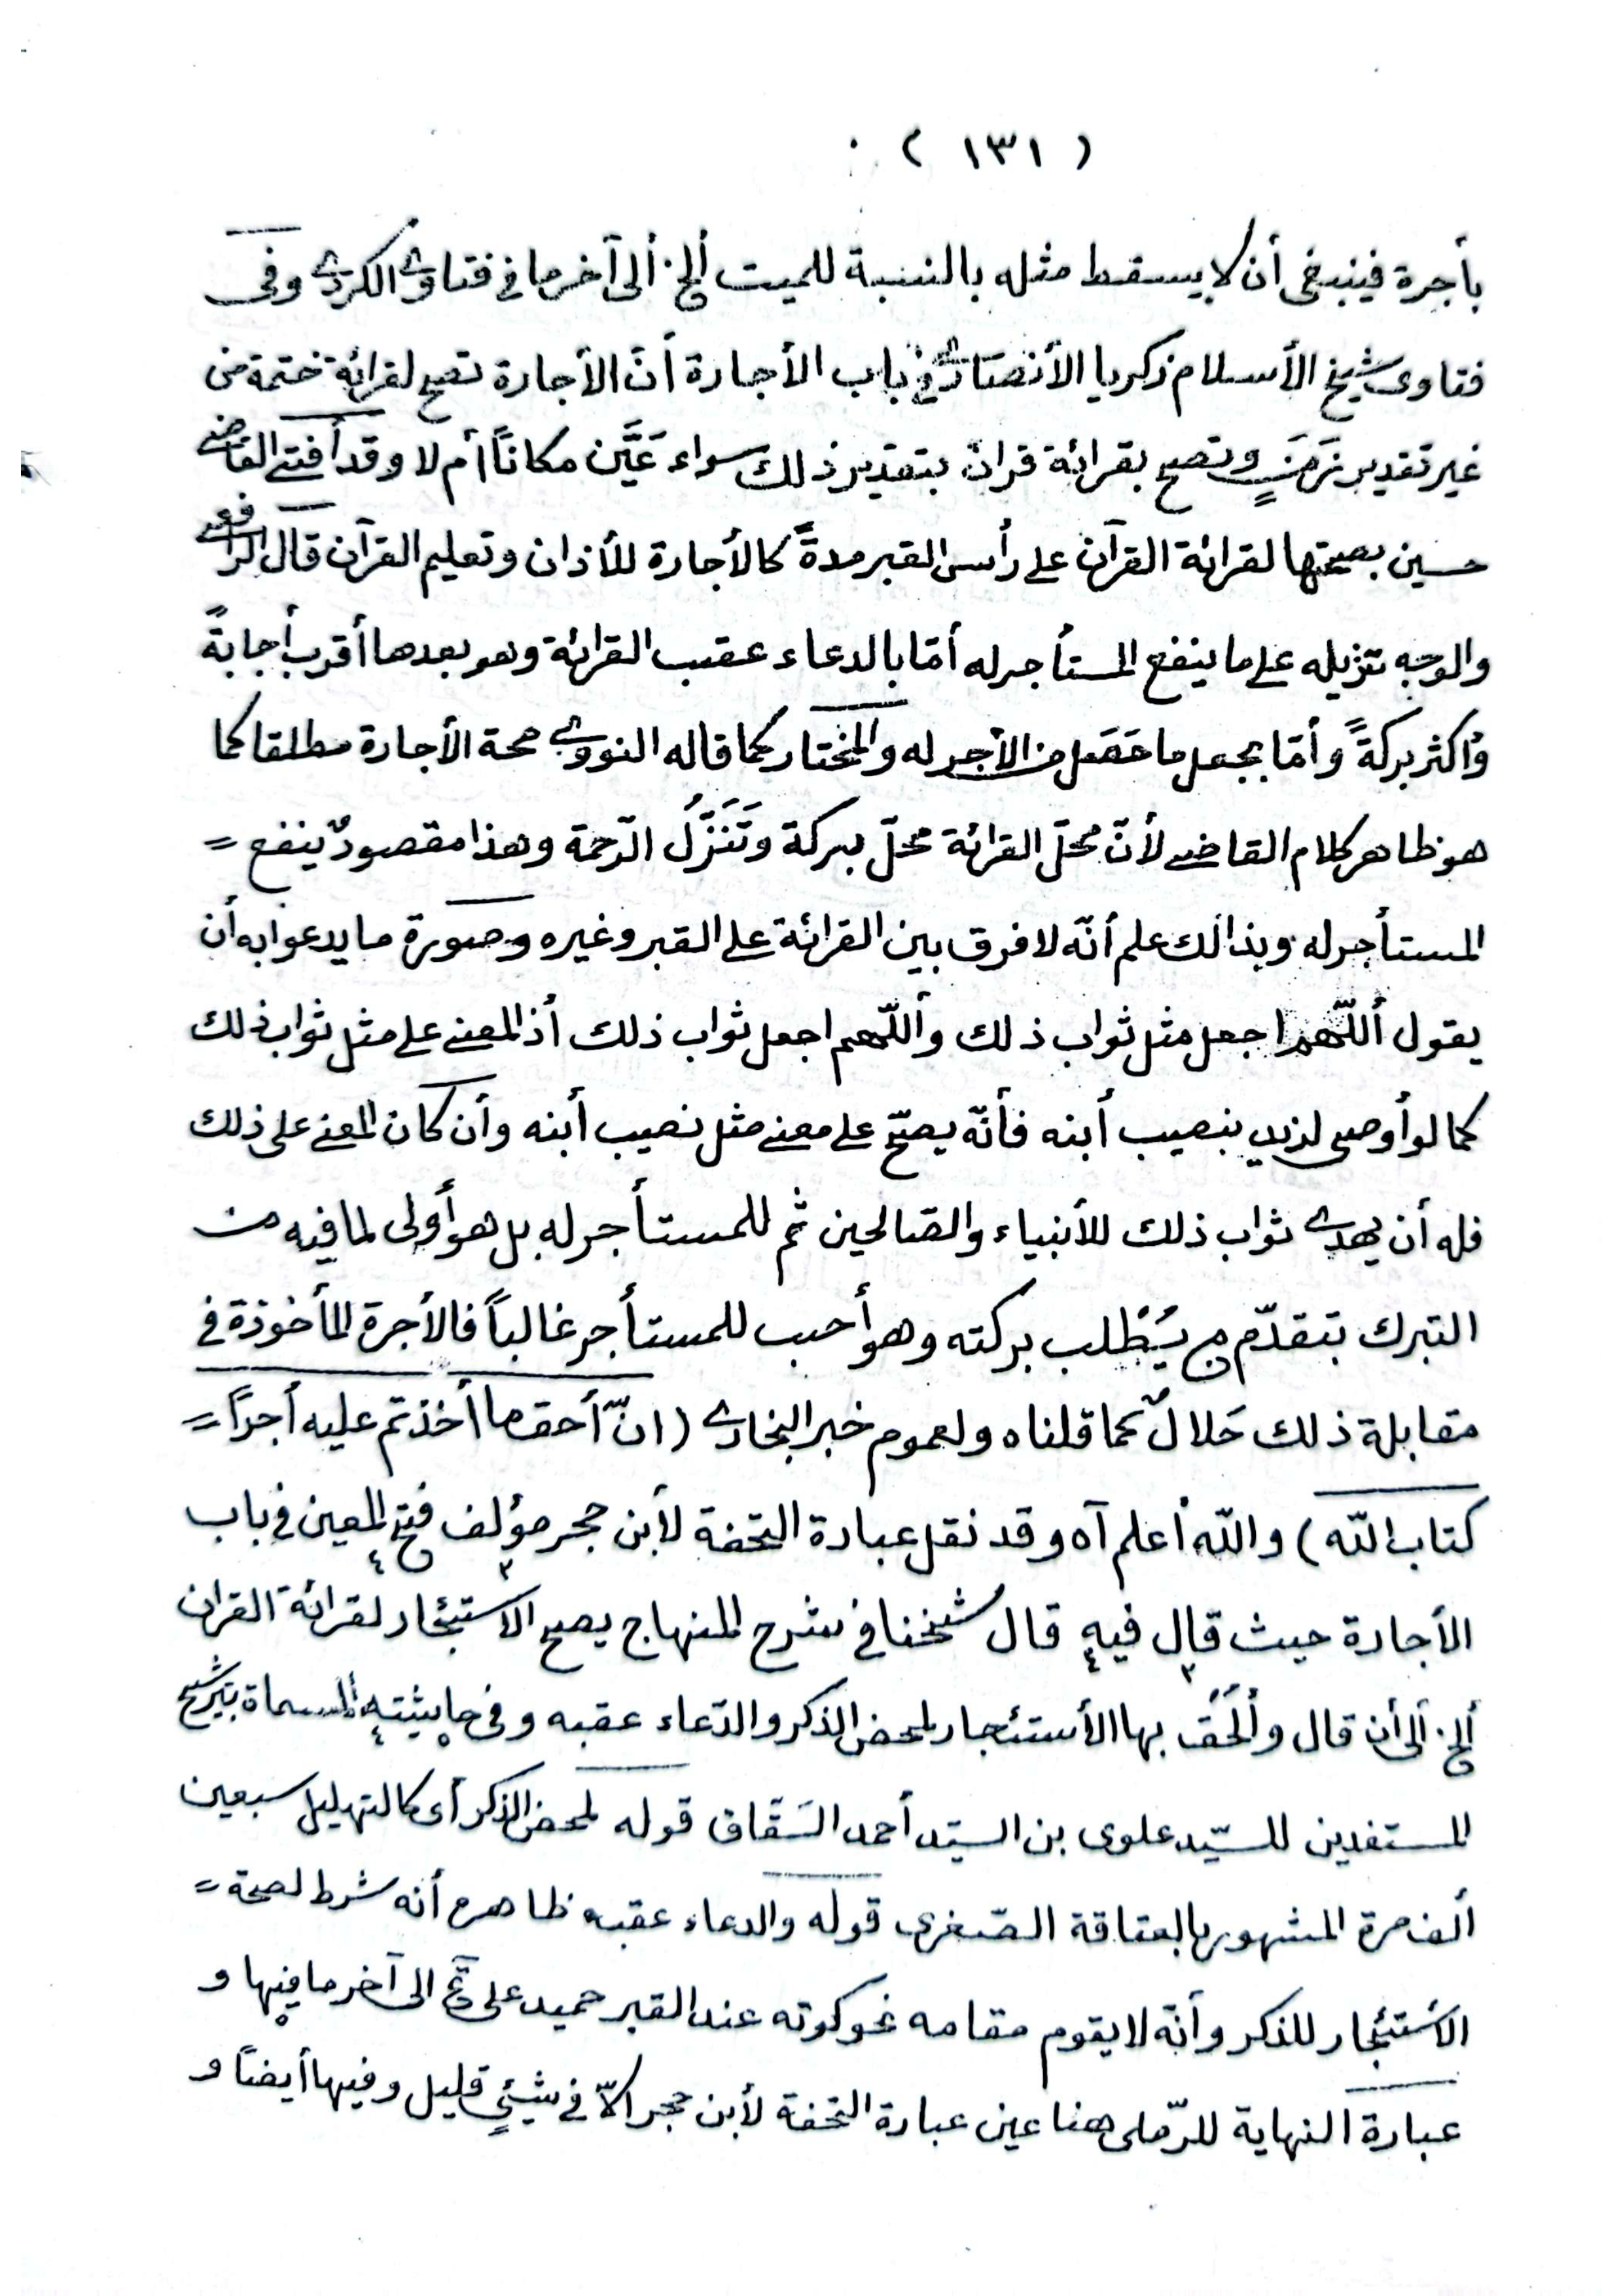 ( ١٣١ )
بأجرة فينبغى أن لا يسقط مثله بالنسبة للميت ألخ. ألى آخر ما فى فتاوى الكردى وفى
فتاوى شيخ الأسلام زكريا الأنصارى فى باب الأجارة أنّ الأجارة تصح لقرائة ختمة من
غير تقدير زَمَنٍ وتصح بقرائة قران بتقدير ذلك سواء عَيَّن مكاناً أم لا وقد أفتى القاضى
حسين بصحتها لقرائة القرآن على رأس القبر مدةً كالأجارة للأذان وتعليم القرآن قال الرافعى
والوجه تنزيله على ما ينفع المستأجر له أمّا بالدعاء عقيب القرائة وهو بعدها أقرب أجابةً
وأكثر بركةً وأمّا بجعل ما حَصَل من الأجر له والمختار كما قاله النووى صحة الأجارة مطلقا كما
هو ظاهر كلام القاضى لأنّ محلّ القرائة محلّ بركة وتَنَزُّل الرّحمة وهذا مقصودٌ ينفع =
المستأجر له وبذالك علم أنّه لا فرق بين القرائة على القبر وغيره وصورة ما يدعوا به أن
يقول أللّهم اجعل مثل ثواب ذلك وأللّهم اجعل ثواب ذلك أذ المعنى على مثل ثواب ذلك
كما لو أوصى لزيد بنصيب أبنه فأنّه يصحّ على معنى مثل نصيب أبنه وأن كان المعنى على ذلك
فله أن يهدى ثواب ذلك للأنبياء والصّالحين ثم للمستأجر له بل هو أولى لما فيه من
التبرك بتقدّم من يُطْلب بركته وهو أحب للمستأجر غالباً فالأجرة المأخوذة فى
مقابلة ذلك حَلالٌ كما قلناه ولعموم خبر البخارى (انّ أحق ما أخذتم عليه أجراً =
كتاب اللّه) واللّه أعلم آه وقد نقل عبارة التحفة لأبن حجر مؤلف فتح المعين فى باب
الأجارة حيث قال فيه قال شيخنا فى شرح المنهاج يصح الاستئجار لقرائة القران
ألخ. ألى أن قال وأُلحُق بها الأستئجار لمحض الذكر والدّعاء عقبه وفى حاشيته ألمسماة بترشيح
المستفدين للسيّد علوى بن السيّد أحمد السَقّاف قوله لمحض الذكر أى كالتهليل سبعين
ألف مرة المشهور بالعتاقة الصّغرى قوله والدعاء عقبه ظاهره أنه شرط لصحة =
الأستئجار للذكر وأنّه لا يقوم مقامه نحو كونه عند القبر حميد على تح الى آخر ما فيها و
عبارة النهاية للرّملى هنا عين عبارة التحفة لأبن حجر الاّ فى شيئٍ قليل وفيها أيضاً و